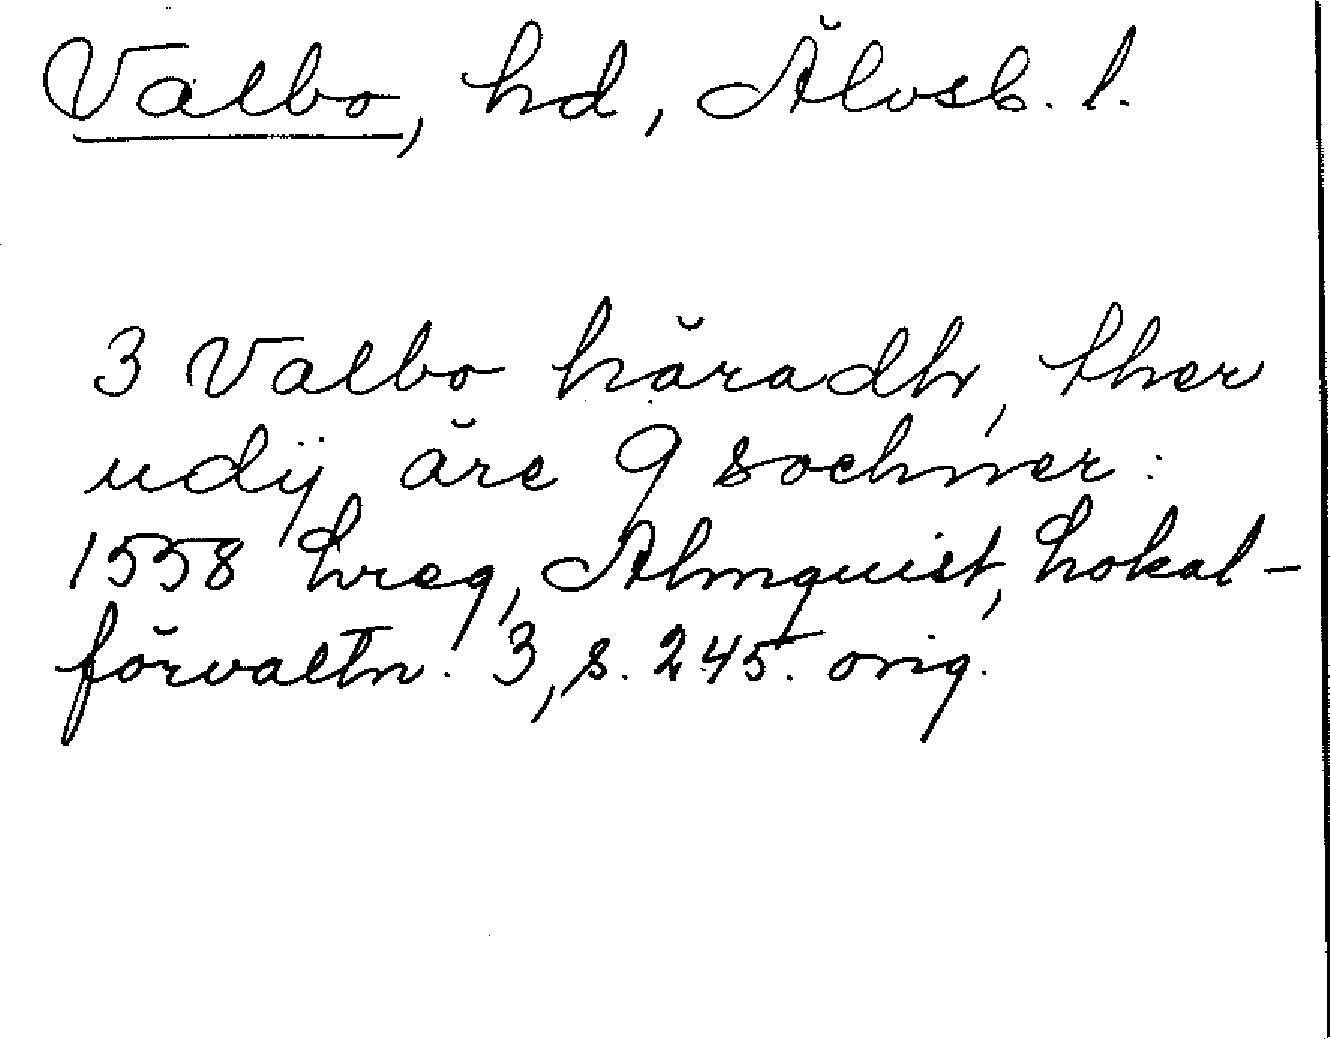 Valbo, hd, Älvsb. l.
3 Valbo häradh, ther
udij äre 9 sochner:
1558 hreg, Almquist, Lokal-
förvaltn. 3, s. 245. orig.